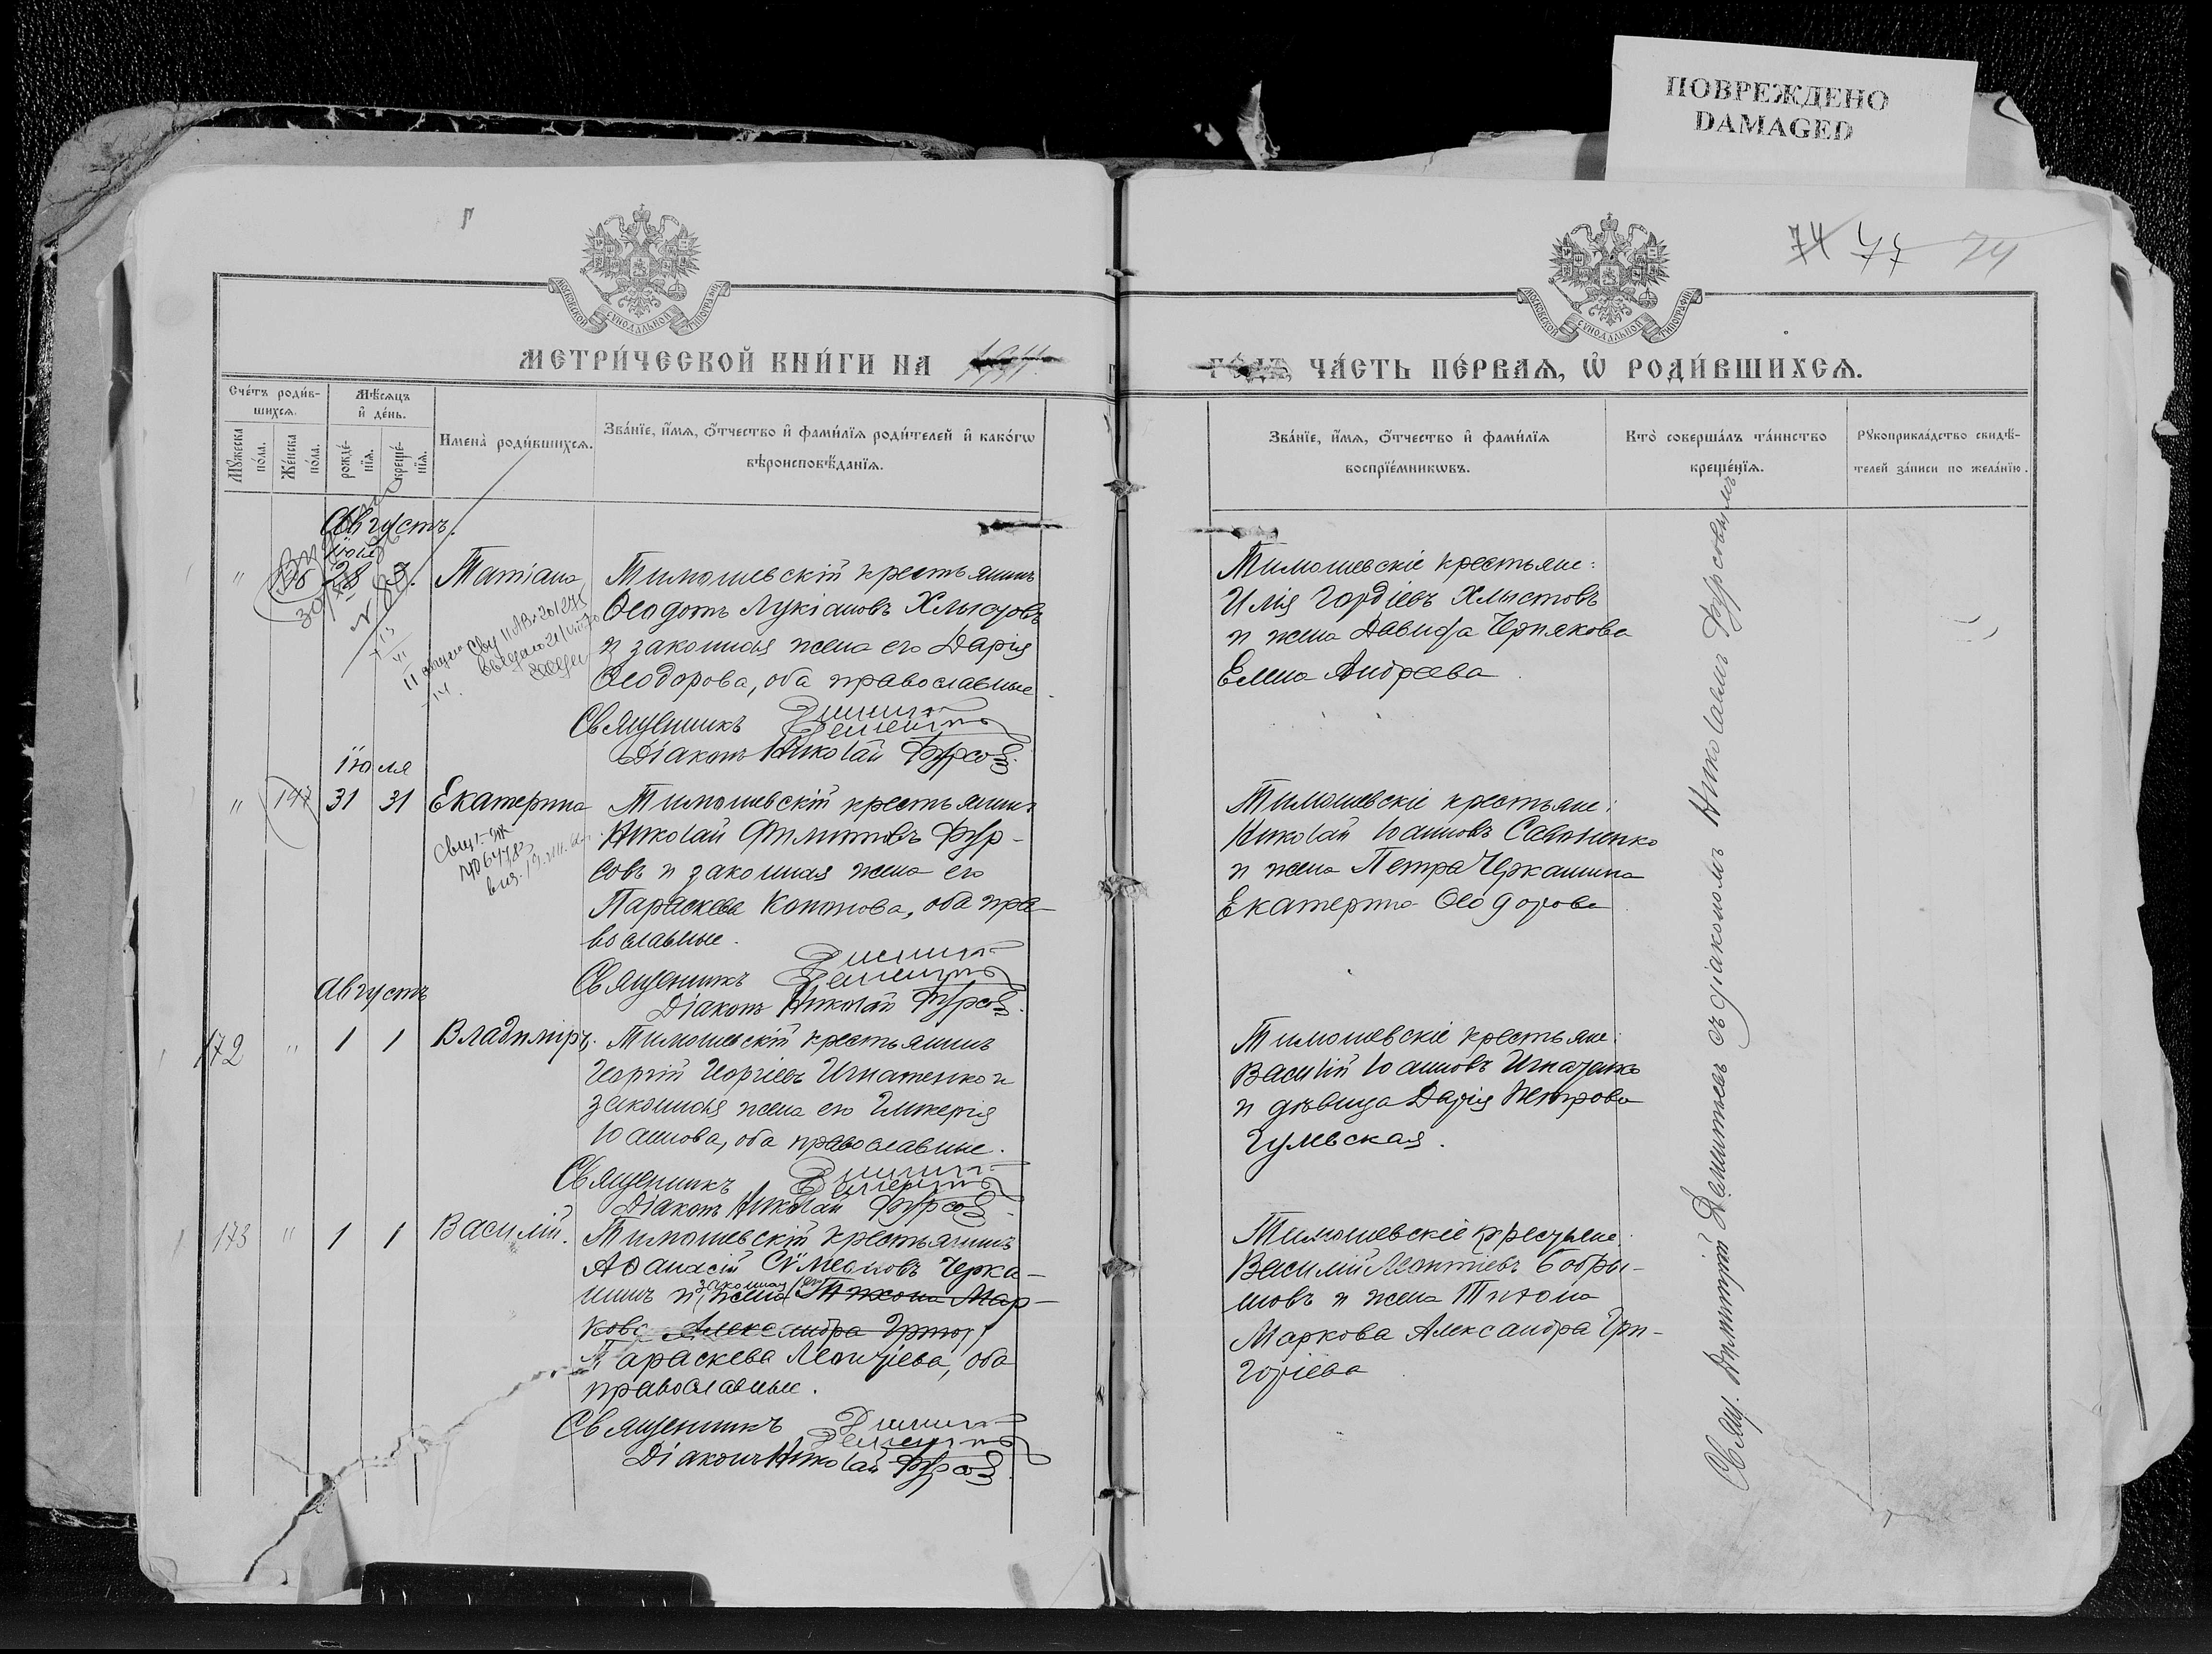 ПОВРЕЖДЕНО
DAMAGED
74 77 74
МОСКОВСКОЙ СѴНОДАЛЬНОЙ ТИПОГРАФІИ
МОСКОВСКОЙ СѴНОДАЛЬНОЙ ТИПОГРАФІИ
МЕТРИ́ЧЕСКОЙ КНИ́ГИ НА 1911
ГО́ДЪ, ЧА́СТЬ ПЕ́РВАѦ, Ѡ҆ РОДИ́ВШИХСѦ.
Сче́тъ роди́в-
шихсѧ.
Мѣ́сѧцъ
и҆ де́нь.
Мꙋ́жеска
по́ла.
Же́нска
по́ла.
рожде́-
нїѧ.
креще́-
нїѧ.
Имена̀ роди́вшихсѧ.
Зва́нїе, и҆́мѧ, ѻ҆́тчество и҆ фами́лїѧ роди́телей и҆ како́гѡ
вѣроисповѣ́данїѧ.
Зва́нїе, и҆́мѧ, ѻ҆́тчество и҆ фами́лїѧ
воспрїе́мникѡвъ.
Кто̀ соверша́лъ та́инство
креще́нїѧ.
Рꙋкоприкла́дство свидѣ́-
телей за́писи по жела́нїю.
Августъ.
іюля
" 28 3. Татіана
Тимошевскій крестьянинъ
Ѳеодотъ Лукіановъ Хлыстовъ
и законная жена его Дарія
Ѳеодорова, оба православные.
Священникъ Димитрій Дементьевъ
Діаконъ Николай Фурсовъ.
Тимошевскіе крестьяне:
Илія Гордіевъ Хлыстовъ
и жена Давида Чернякова
Елена Андреева
іюля
" 147 31 31 Екатерина
Тимошевскій крестьянинъ
Николай Филипповъ Фур-
совъ и законная жена его
Параскева Кононова, оба пра-
вославные.
Священникъ Димитрій Дементьевъ
Діаконъ Николай Фурсовъ.
Тимошевскіе крестьяне:
Николай Іоанновъ Савоненко
и жена Петра Черкашина
Екатерина Ѳеодорова
Августъ
172 " 1 1 Владиміръ.
Тимошевскій крестьянинъ
Георгій Георгіевъ Игнатенко и
законная жена его Гликерія
Іоаннова, оба православные.
Священникъ Димитрій Дементьевъ
Діаконъ Николай Фурсовъ.
Тимошевскіе крестьяне:
Василій Іоанновъ Игнатенко
и дѣвица Дарія Петрова
Гулевская.
173 " 1 1 Василій.
Тимошевскій крестьянинъ
Аѳанасій Сѵмеоновъ Черка-
шинъ и законная жена его Тихона Мар-
кова Александра Григор
Параскева Леонтіева, оба
православные.
Священникъ Димитрій Дементьевъ
Діаконъ Николай Фурсовъ.
Тимошевскіе крестьяне:
Василій Леонтіевъ Бобры-
шовъ и жена Тихона
Маркова Александра Гри-
горіева
Свящ. Димитрій Дементьевъ съ діакономъ Николаемъ Фурсовымъ